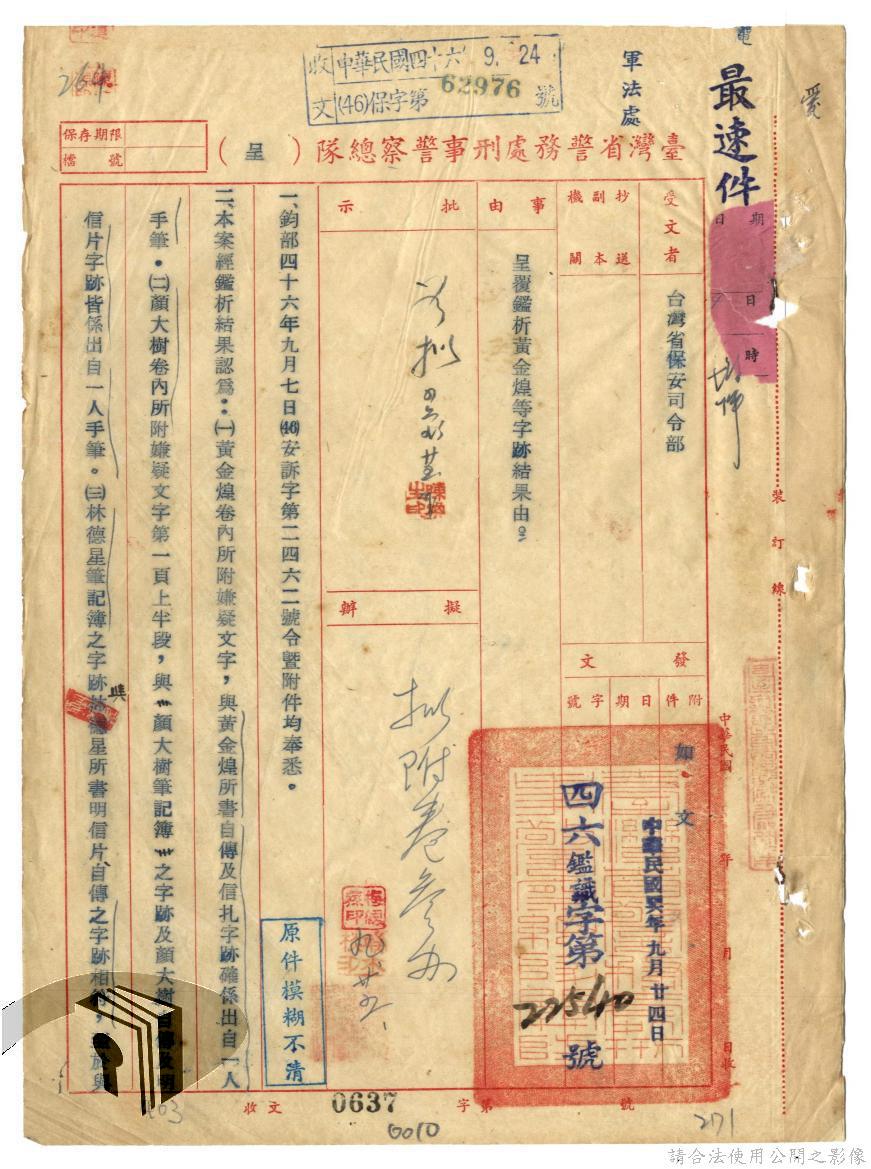 最速件
軍法處
收文
中華民國四十六 9. 24
(46)保字第 62976 號
保存期限
檔號
臺灣省警務處刑事警察總隊（呈）
受文者
台灣省保安司令部
抄送副本機關
事由
呈覆鑑析黃金煌等字跡結果由。
批示
擬辦
擬附卷參辦
發文
附件
如文
日期
中華民國 年 月 日
中華民國四六年九月廿四日
字號
四六鑑識字第 22540 號
一、鈞部四十六年九月七日(46)安訴字第二四六二號令暨附件均奉悉。
二、本案經鑑析結果認爲：㈠黃金煌卷內所附嫌疑文字，與黃金煌所書自傳及信扎字跡確係出自一人
手筆。㈡顏大樹卷內所附嫌疑文字第一頁上半段，與顏大樹筆記簿之字跡及顏大樹自傳及明
信片字跡皆係出自一人手筆。㈢林德星筆記簿之字跡與德星所書明信片自傳之字跡相符，於與
原件模糊不清
裝訂線
收文 0637 字第 號
0010
271
請合法使用公開之影像